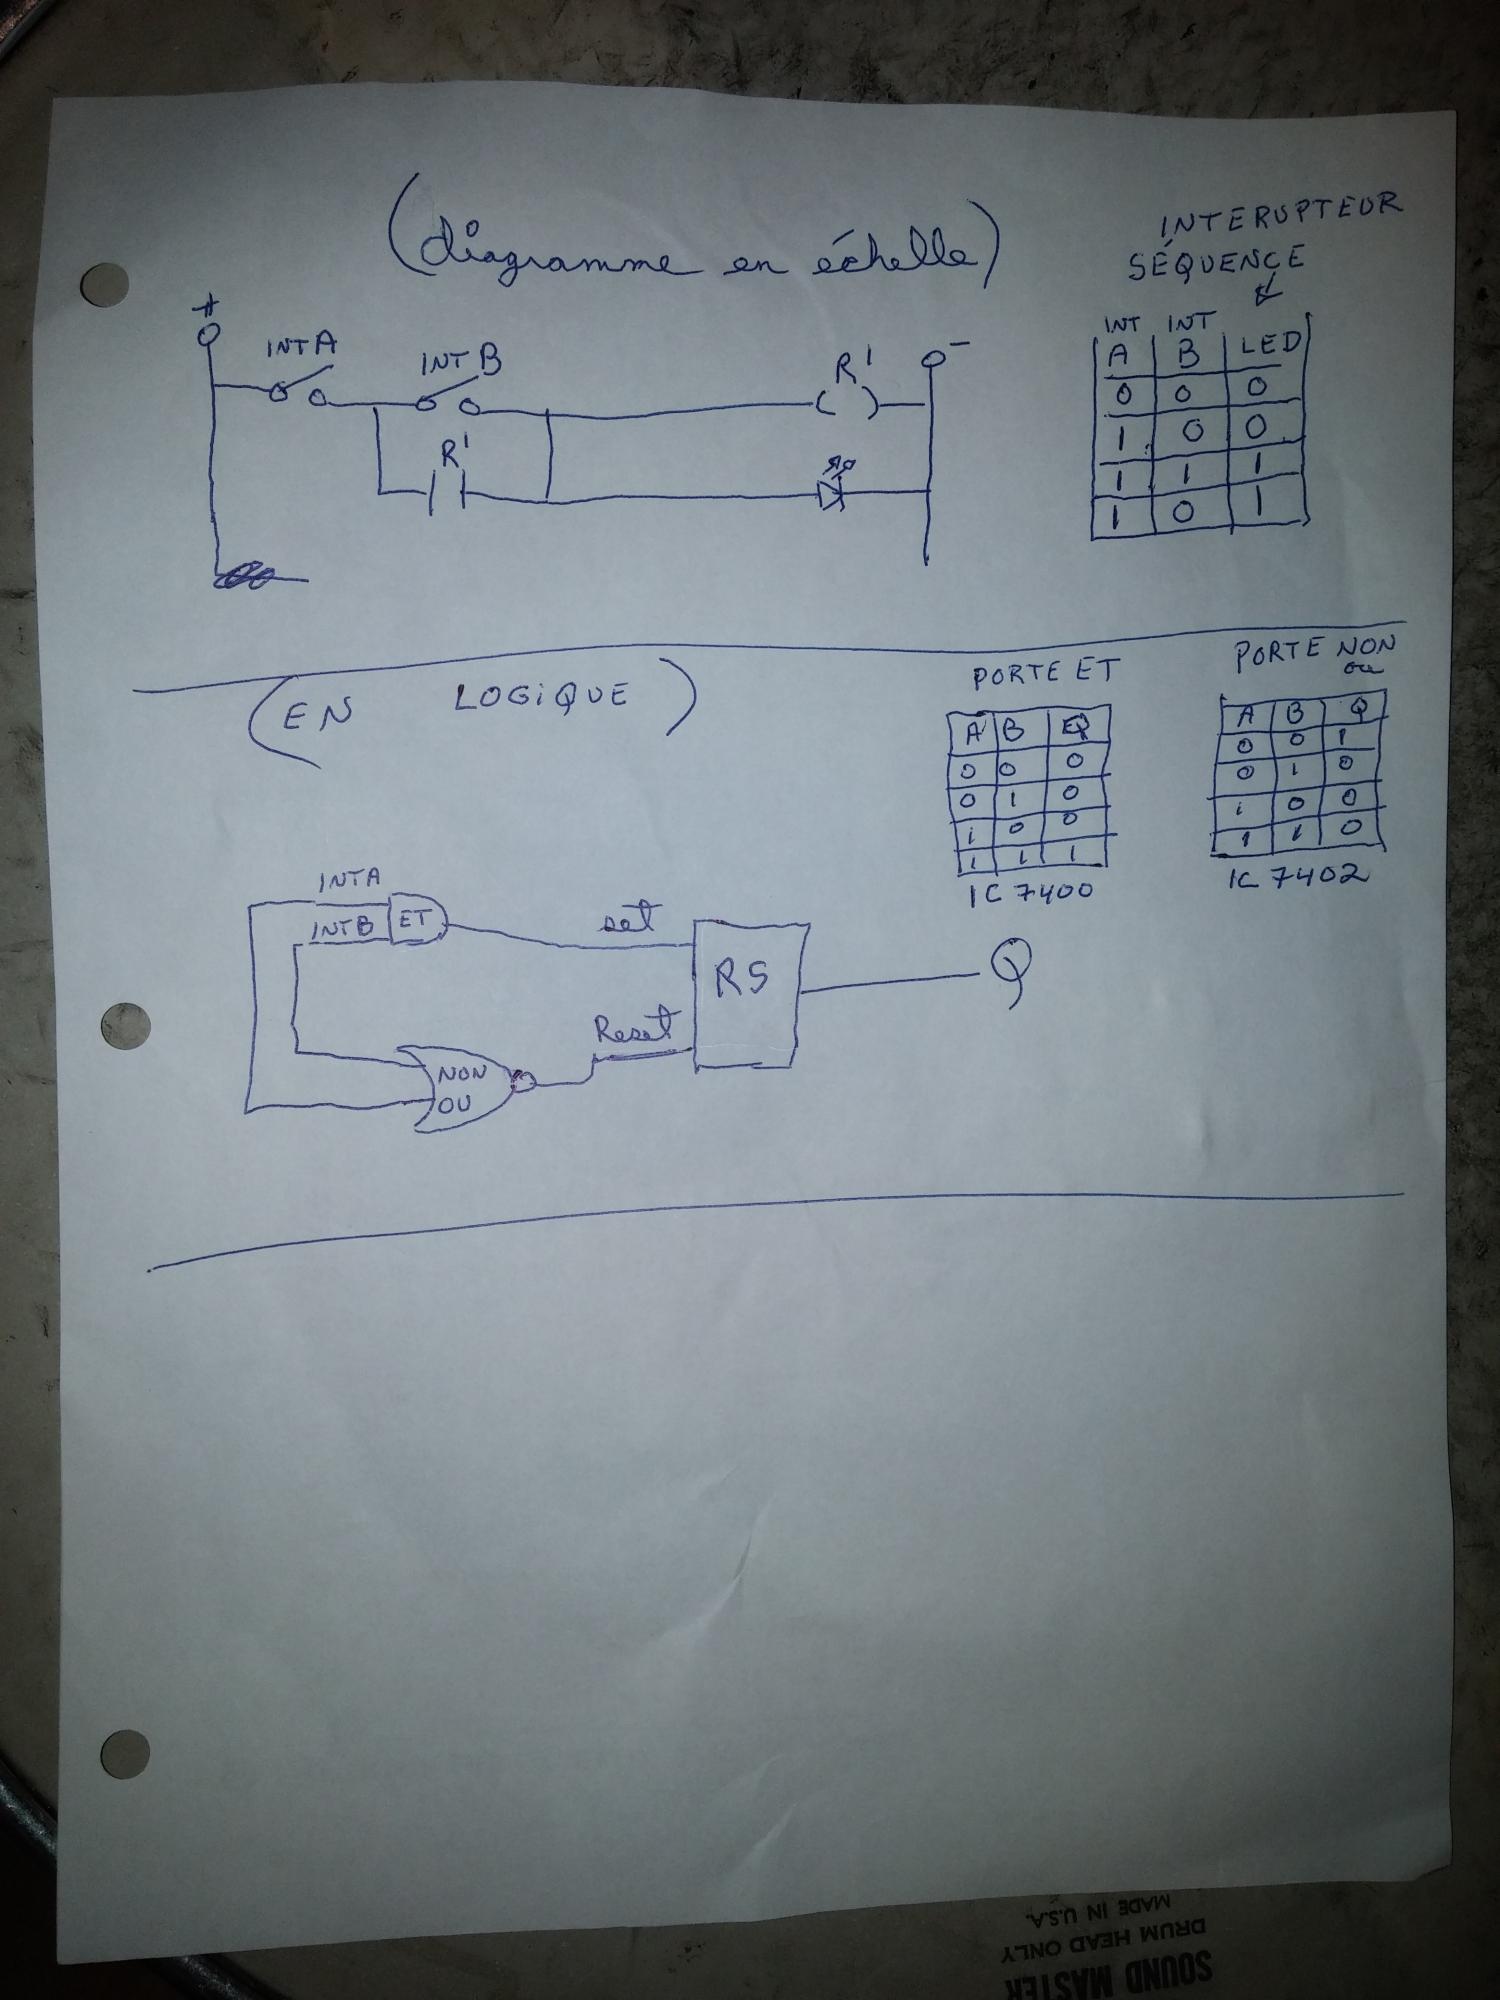 (diagramme en échelle)
INTERUPTEUR
SÉQUENCE
+
INT A
INT B
R1
-
R1
INT INT
A B LED
0 0 0
1 0 0
1 1 1
1 0 1
(EN LOGIQUE)
PORTE ET
A B Q
0 0 0
0 1 0
1 0 0
1 1 1
IC 7400
PORTE NON
ou
A B Q
0 0 1
0 1 0
1 0 0
1 1 0
IC 7402
INTA
INTB ET
set
RS
Q
Reset
NON
OU
SOUND MASTER
DRUM HEAD ONLY
MADE IN U.S.A.